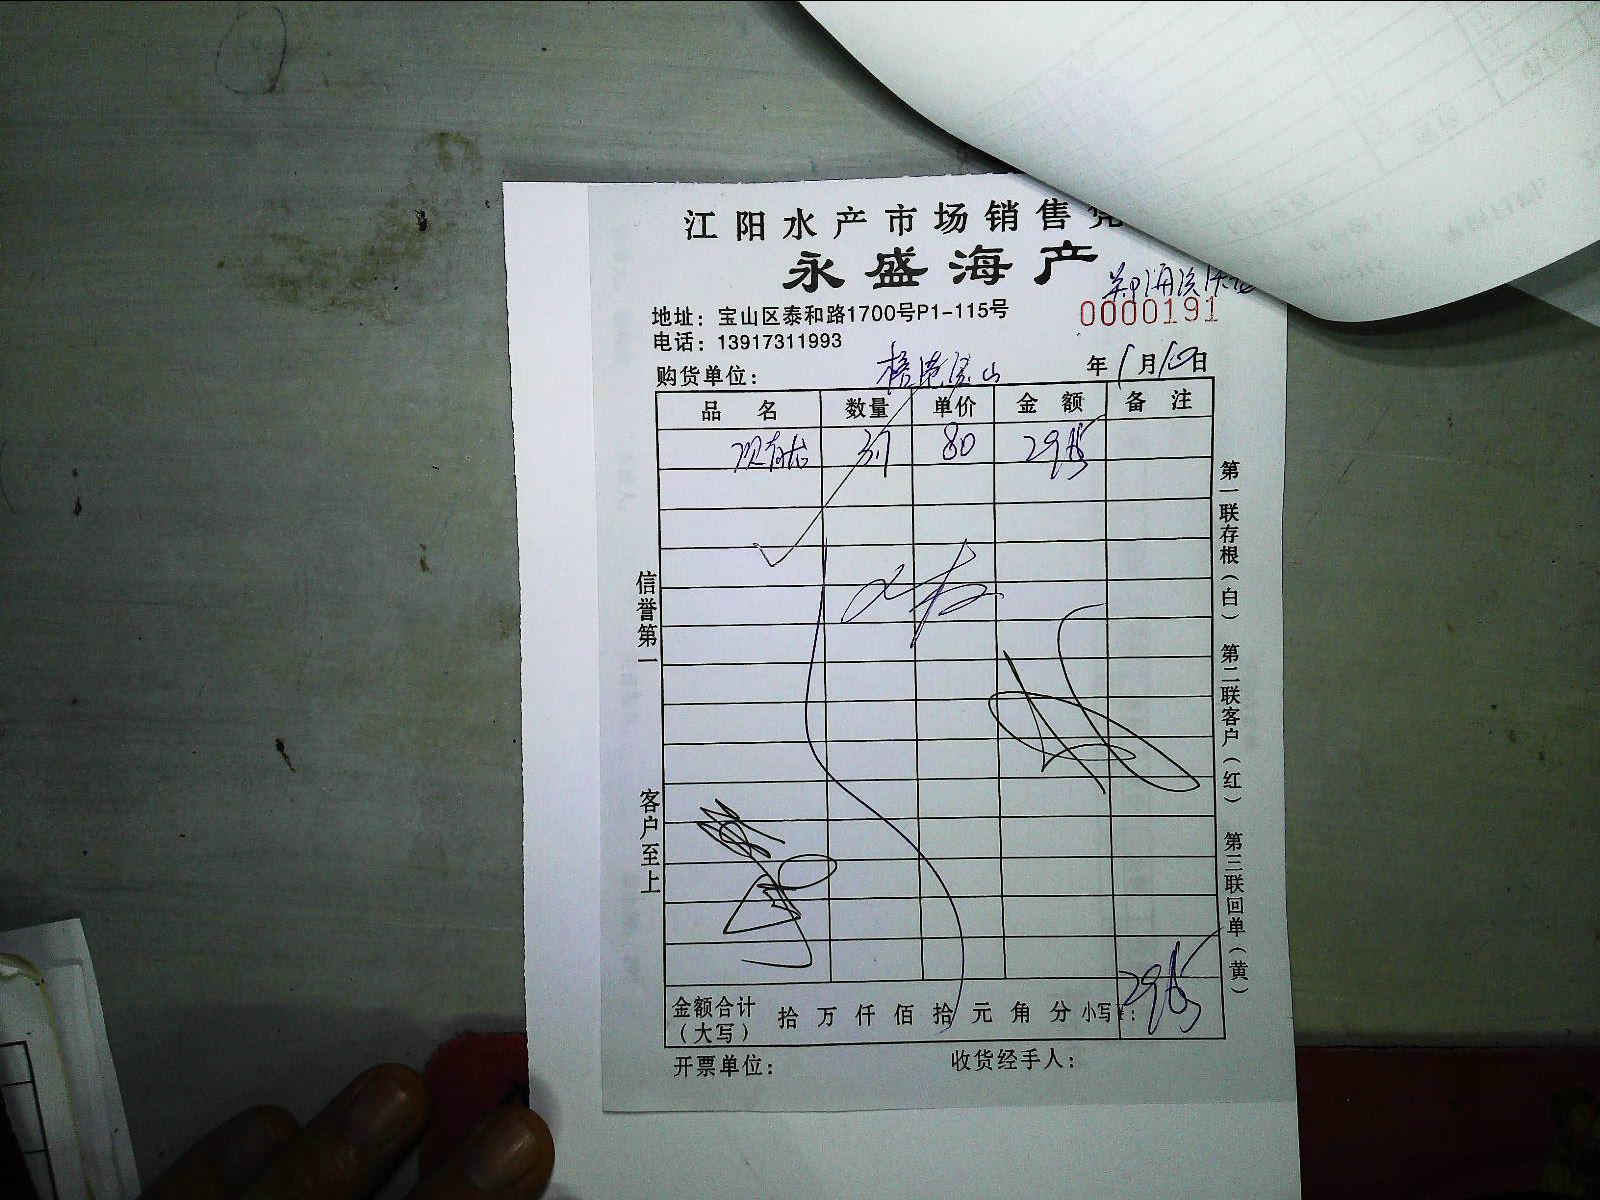 江阳水产市场销售凭
永盛海产
地址：宝山区泰和路1700号P1-115号
0000191
电话：13917311993
购货单位： 年1月10日
品名 数量 单价 金额 备注
37 80
信誉第一
客户至上
第一联存根（白） 第二联客户（红） 第三联回单（黄）
金额合计（大写） 拾 万 仟 佰 拾 元 角 分 小写¥：
开票单位： 收货经手人：